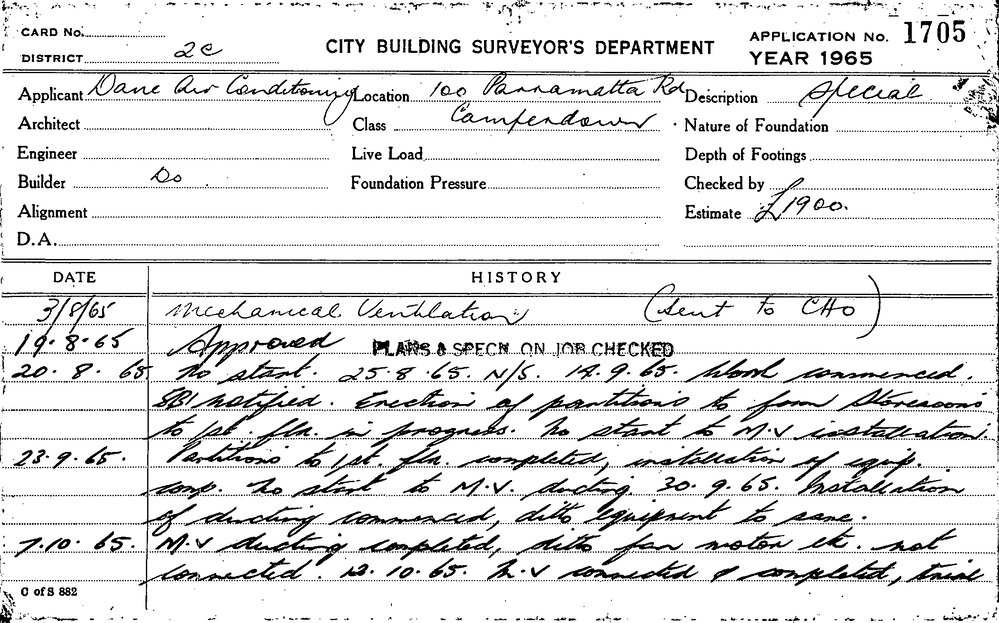 CARD No.
DISTRICT 2c
CITY BUILDING SURVEYOR'S DEPARTMENT
APPLICATION No. 1705
YEAR 1965
Applicant Dane Air Conditioning Location 100 Parramatta Rd Description Special
Architect Class Camperdown Nature of Foundation
Engineer Live Load Depth of Footings
Builder Do Foundation Pressure Checked by
Alignment Estimate £1900.
D.A.
DATE HISTORY
3/8/65 Mechanical Ventilation (Sent to CHO)
19.8.65 Approved PLANS & SPECN ON JOB CHECKED
20.8.65. No start. 25.8.65. N/S. 14.9.65. Work commenced.
notified. Erection of partitions to form Storerooms
to 1st. flr. in progress. No start to M.V installation.
23.9.65. Partitions to 1st. flr. completed, installation of equip.
comp. No start to M.V. ducting. 30.9.65. Installation
of ducting commenced, ditto equipment to same.
7.10.65. M.V ducting completed, ditto fan motor etc. not
connected. 12.10.65. M.V connected & completed, trial
C of S 882